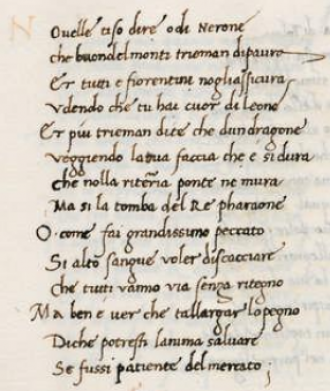 N Ouelle ti so dire odi Nerone
che buondelmonti trieman di paura
Et tutti e fiorentini nogliassicura
Vdendo che tu hai cuor di leone
Et piu trieman di te che dun dragone
veggiendo la tua faccia che e si dura
che nolla riterria ponte ne mura
Ma si la tomba del Re pharaone
O come fai grandissimo peccato
Si alto sangue voler discacciare
che tutti vanno via senza ritegno
Ma ben e uer che tallargar lo pegno
Di che potresti lanima saluare
Se fussi patiente del mercato